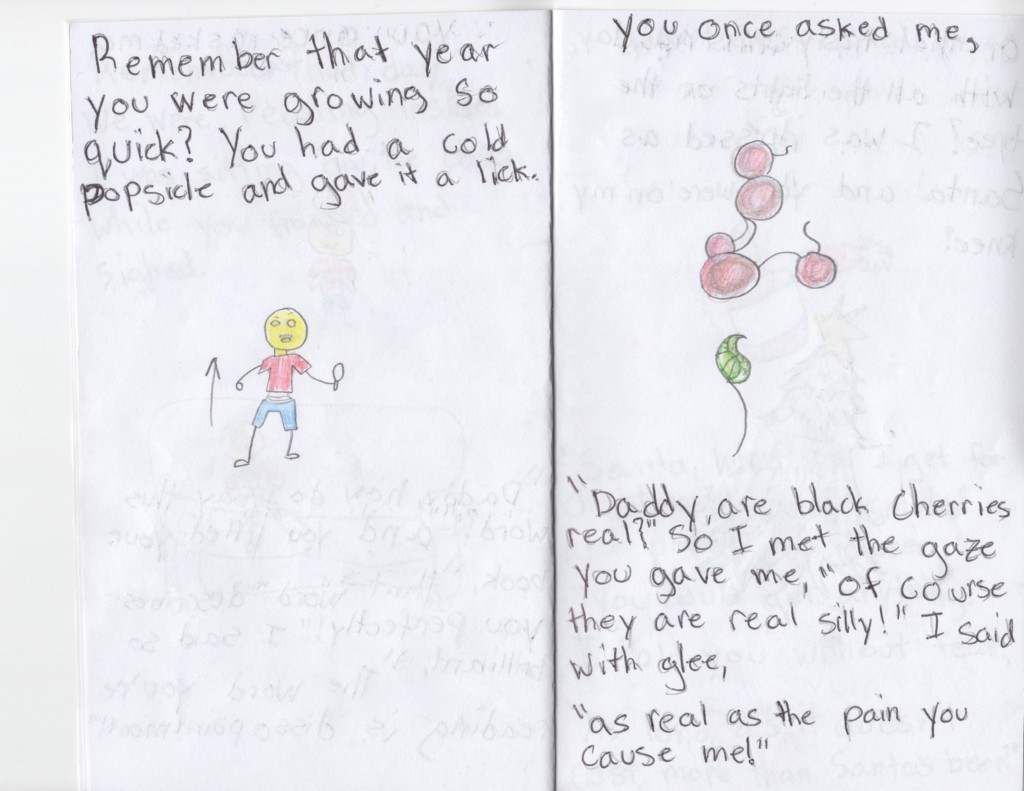 Remember that year
you were growing so
quick? You had a cold
popsicle and gave it a lick.
you once asked me,
"Daddy, are black Cherries
real?" So I met the gaze
you gave me, "of course
they are real silly!" I said
with glee,
"as real as the pain you
cause me!"